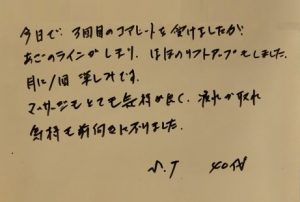 今日で、3回目のコアレートを受けましたが、
あごのラインがしまり、ほほのリフトアップもしました。
月に1回 楽しみです。
マッサージもとても気持が良く、疲れが取れ
気持も前向きになりました。
S.T 40代